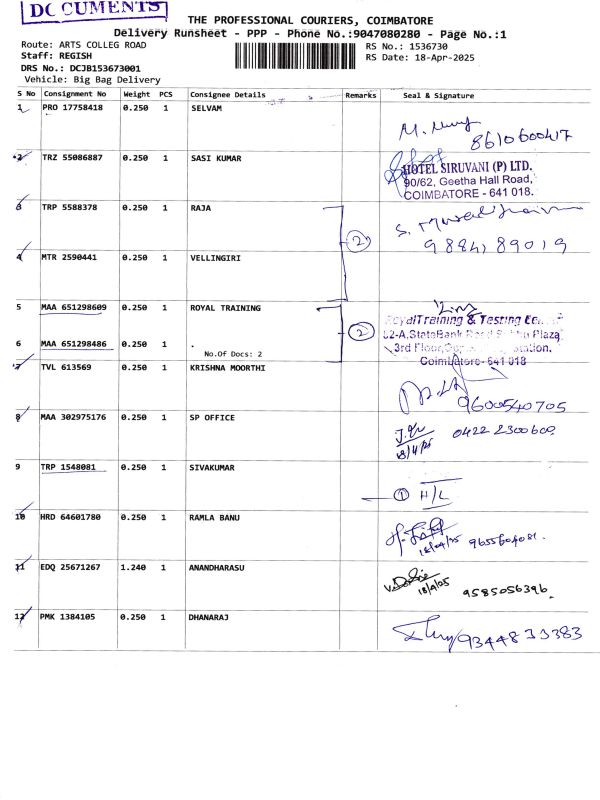 DOCUMENTS
THE PROFESSIONAL COURIERS, COIMBATORE
Delivery Runsheet - PPP - Phone No.:9047080280 - Page No.:1
Route: ARTS COLLEG ROAD
RS No.: 1536730
Staff: REGISH
RS Date: 18-Apr-2025
DRS No.: DCJB153673001
Vehicle: Big Bag Delivery
S No Consignment No Weight PCS Consignee Details Remarks Seal & Signature
1 PRO 17758418 0.250 1 SELVAM
8610600417
2 TRZ 55086887 0.250 1 SASI KUMAR
HOTEL SIRUVANI (P) LTD.
90/62, Geetha Hall Road,
COIMBATORE - 641 018.
3 TRP 5588378 0.250 1 RAJA
2
9884189019
4 MTR 2590441 0.250 1 VELLINGIRI
5 MAA 651298609 0.250 1 ROYAL TRAINING
2
Royal Training & Testing
State Bank Plaza
3rd Floor,
Coimbatore- 641 018
6 MAA 651298486 0.250 1 .
No.Of Docs: 2
7 TVL 613569 0.250 1 KRISHNA MOORTHI
9600540705
8 MAA 302975176 0.250 1 SP OFFICE
18/4/25 0422 2300600
9 TRP 1548081 0.250 1 SIVAKUMAR
1 H/L
10 HRD 64601780 0.250 1 RAMLA BANU
18/04/25
11 EDQ 25671267 1.240 1 ANANDHARASU
18/4/25 9585056396
12 PMK 1384105 0.250 1 DHANARAJ
9344833383